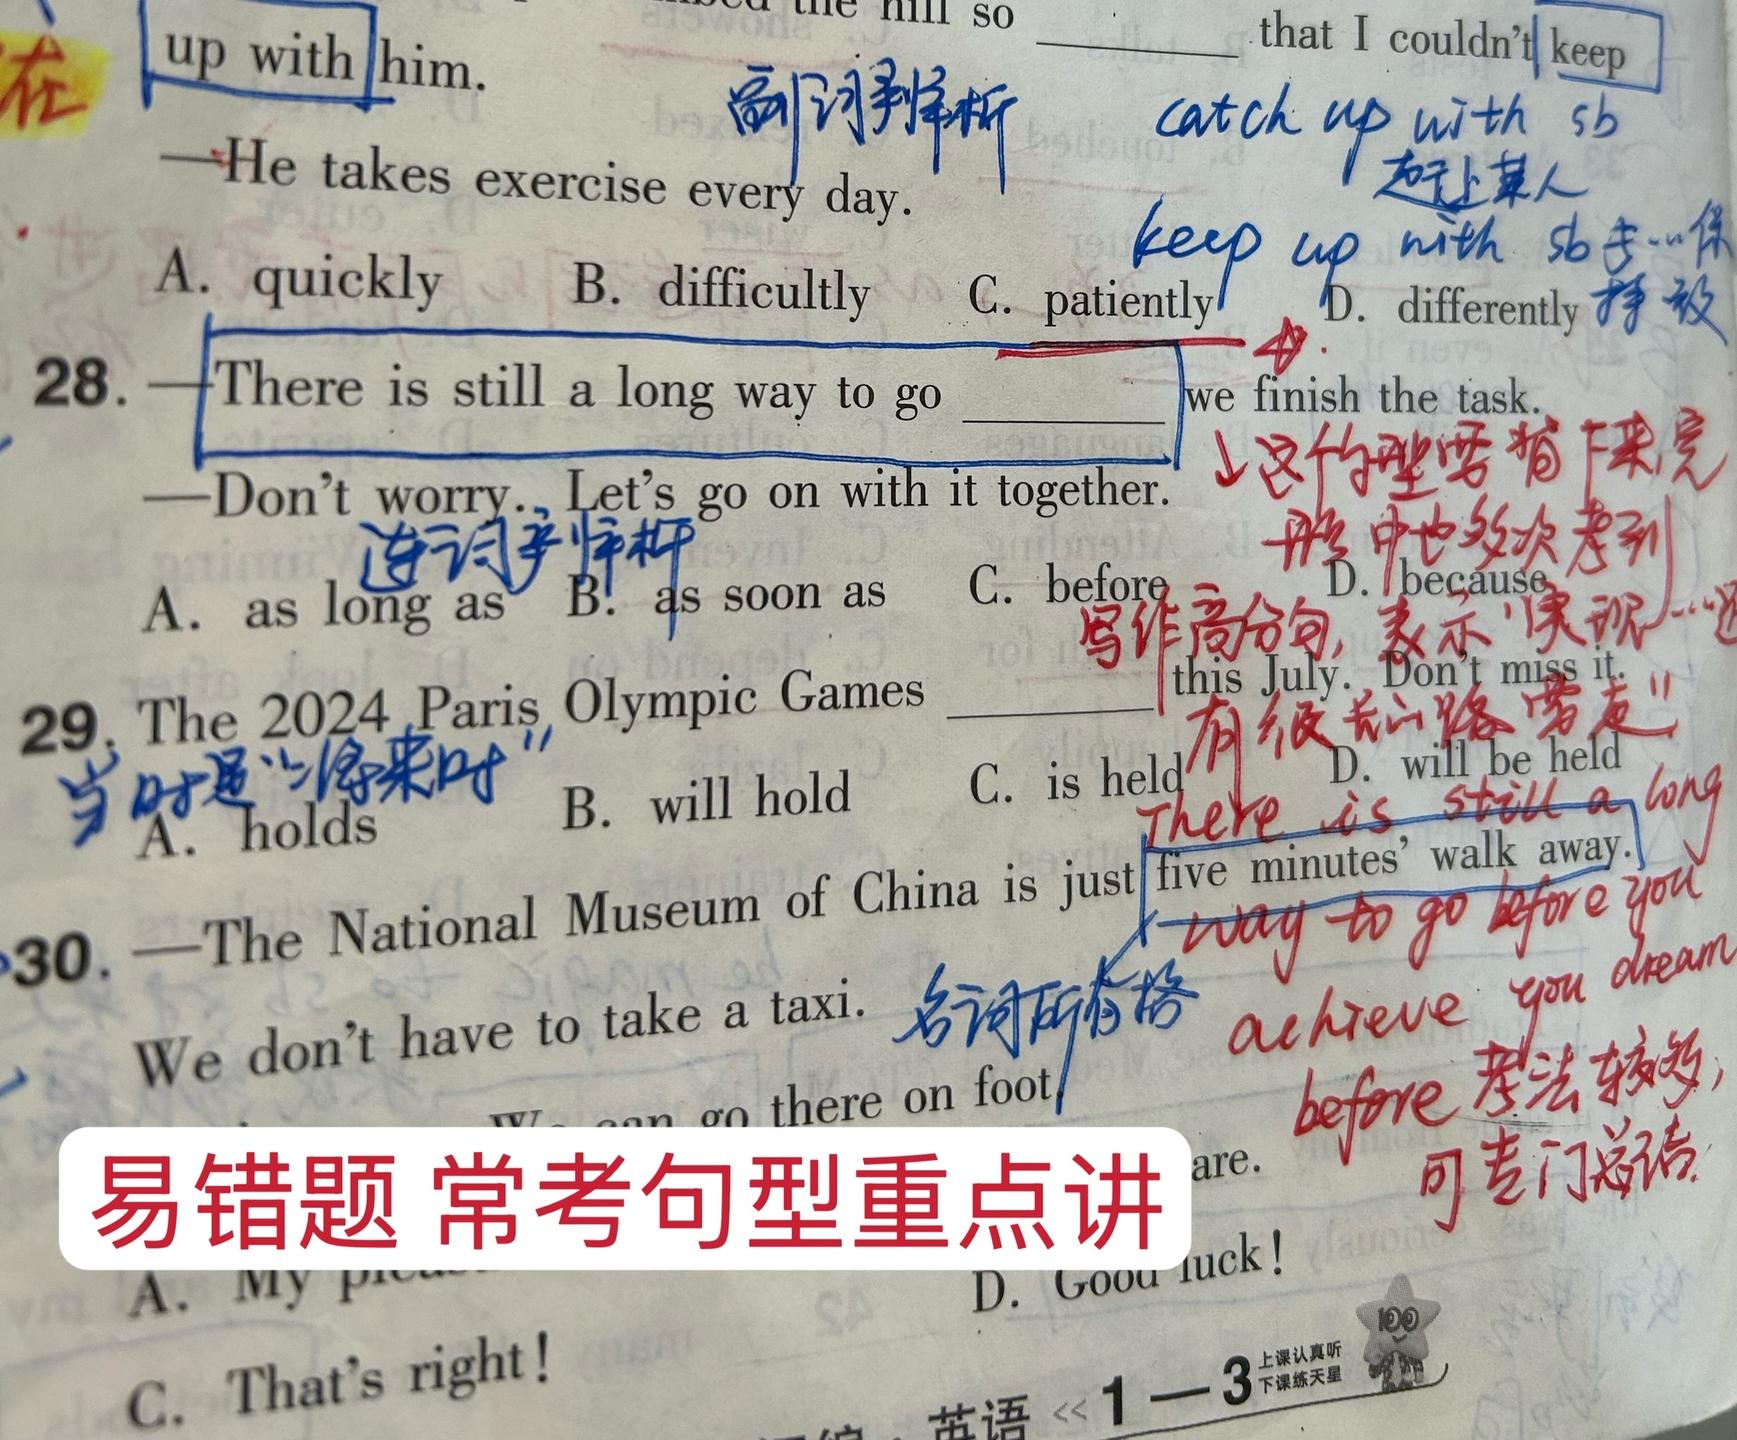 the hill so ______ that I couldn't keep
up with him.
在
副词辨析
catch up with sb
赶上某人
—He takes exercise every day.
keep up with sb 与…保
持一致
A. quickly B. difficultly C. patiently D. differently
28. —There is still a long way to go ______ we finish the task.
↓这个句型要背下来,完
—Don't worry. Let's go on with it together.
连词辨析
形中也多次考到
A. as long as B. as soon as C. before D. because
写作高分句,表示"实现…还
29. The 2024 Paris Olympic Games ______ this July. Don't miss it.
有很长的路要走"
当时是"将来时"
A. holds B. will hold C. is held D. will be held
There is still a long
30. —The National Museum of China is just five minutes' walk away.
way to go before you
We don't have to take a taxi.
名词所有格
achieve you dream
before 考法较多,
可专门总结.
We can go there on foot
are.
易错题 常考句型重点讲
A. My
D. Good luck!
C. That's right!
英语 << 1—3
上课认真听
下课练天星
100